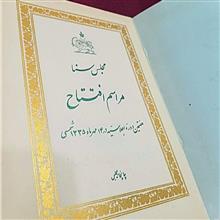 مجلس سنا
مراسم افتتاح
هفتمین دوره اجلاسیه در ۱۴ مهرماه ۱۳۳۵ شمسی
چاپخانه مجلس